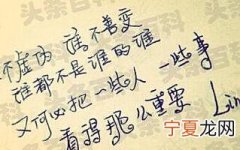 不虚伪 谁不善变
谁都不是谁的谁
又何必把一些人 一些事
看得那么重要 Lin
宁夏龙网